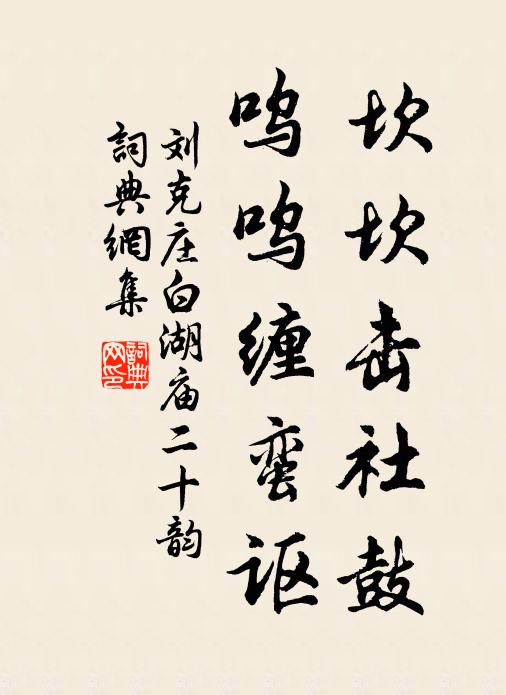 坎坎击社鼓
呜呜缠蛮讴
刘克庄白湖庙二十韵
詞典網集
詞典网印